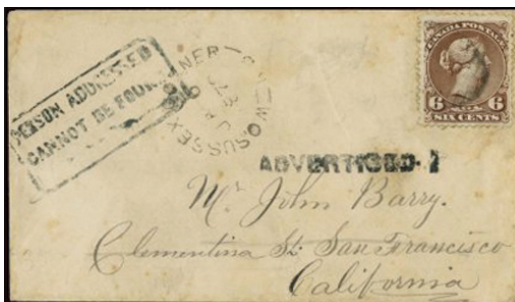 PERSON ADDRESSED
CANNOT BE FOUND
SUSSEX CORNER N.B.
CANADA POSTAGE
6 6
SIX CENTS
ADVERTISED.
Mr. John Barry.
Clementina St. San Francisco
California